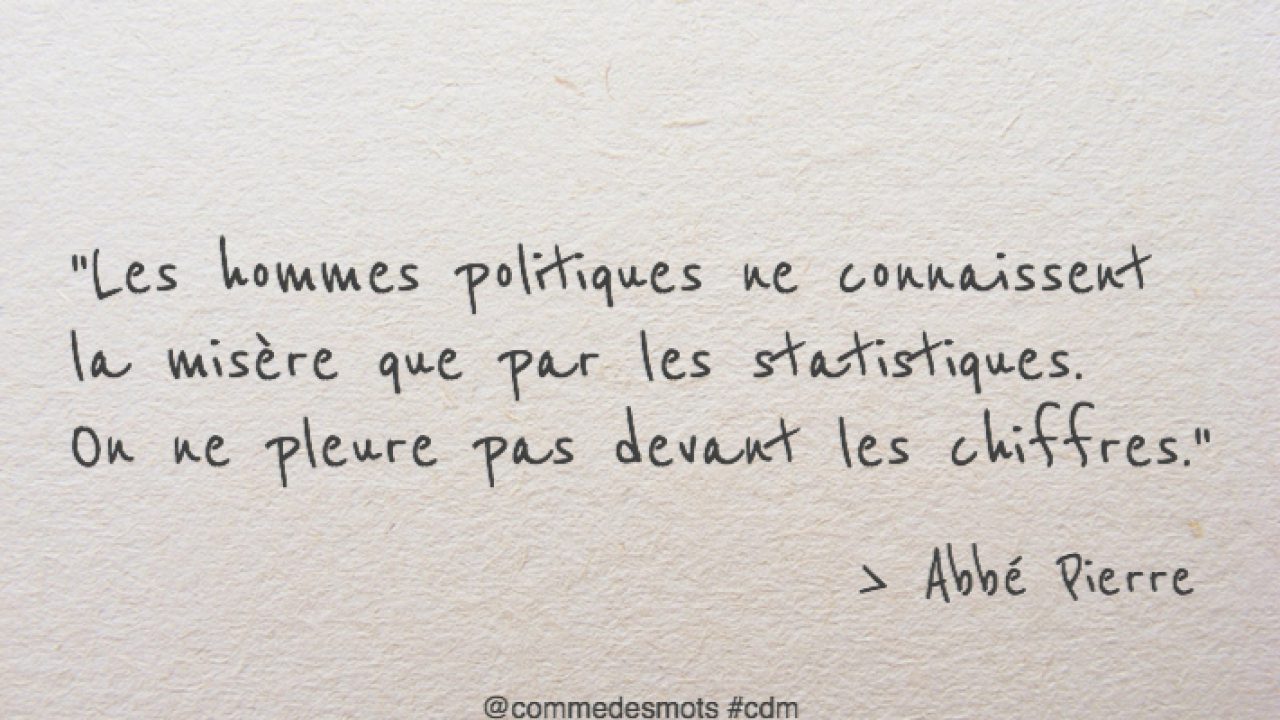 "Les hommes politiques ne connaissent
la misère que par les statistiques.
On ne pleure pas devant les chiffres."
> Abbé Pierre
@commedesmots #cdm